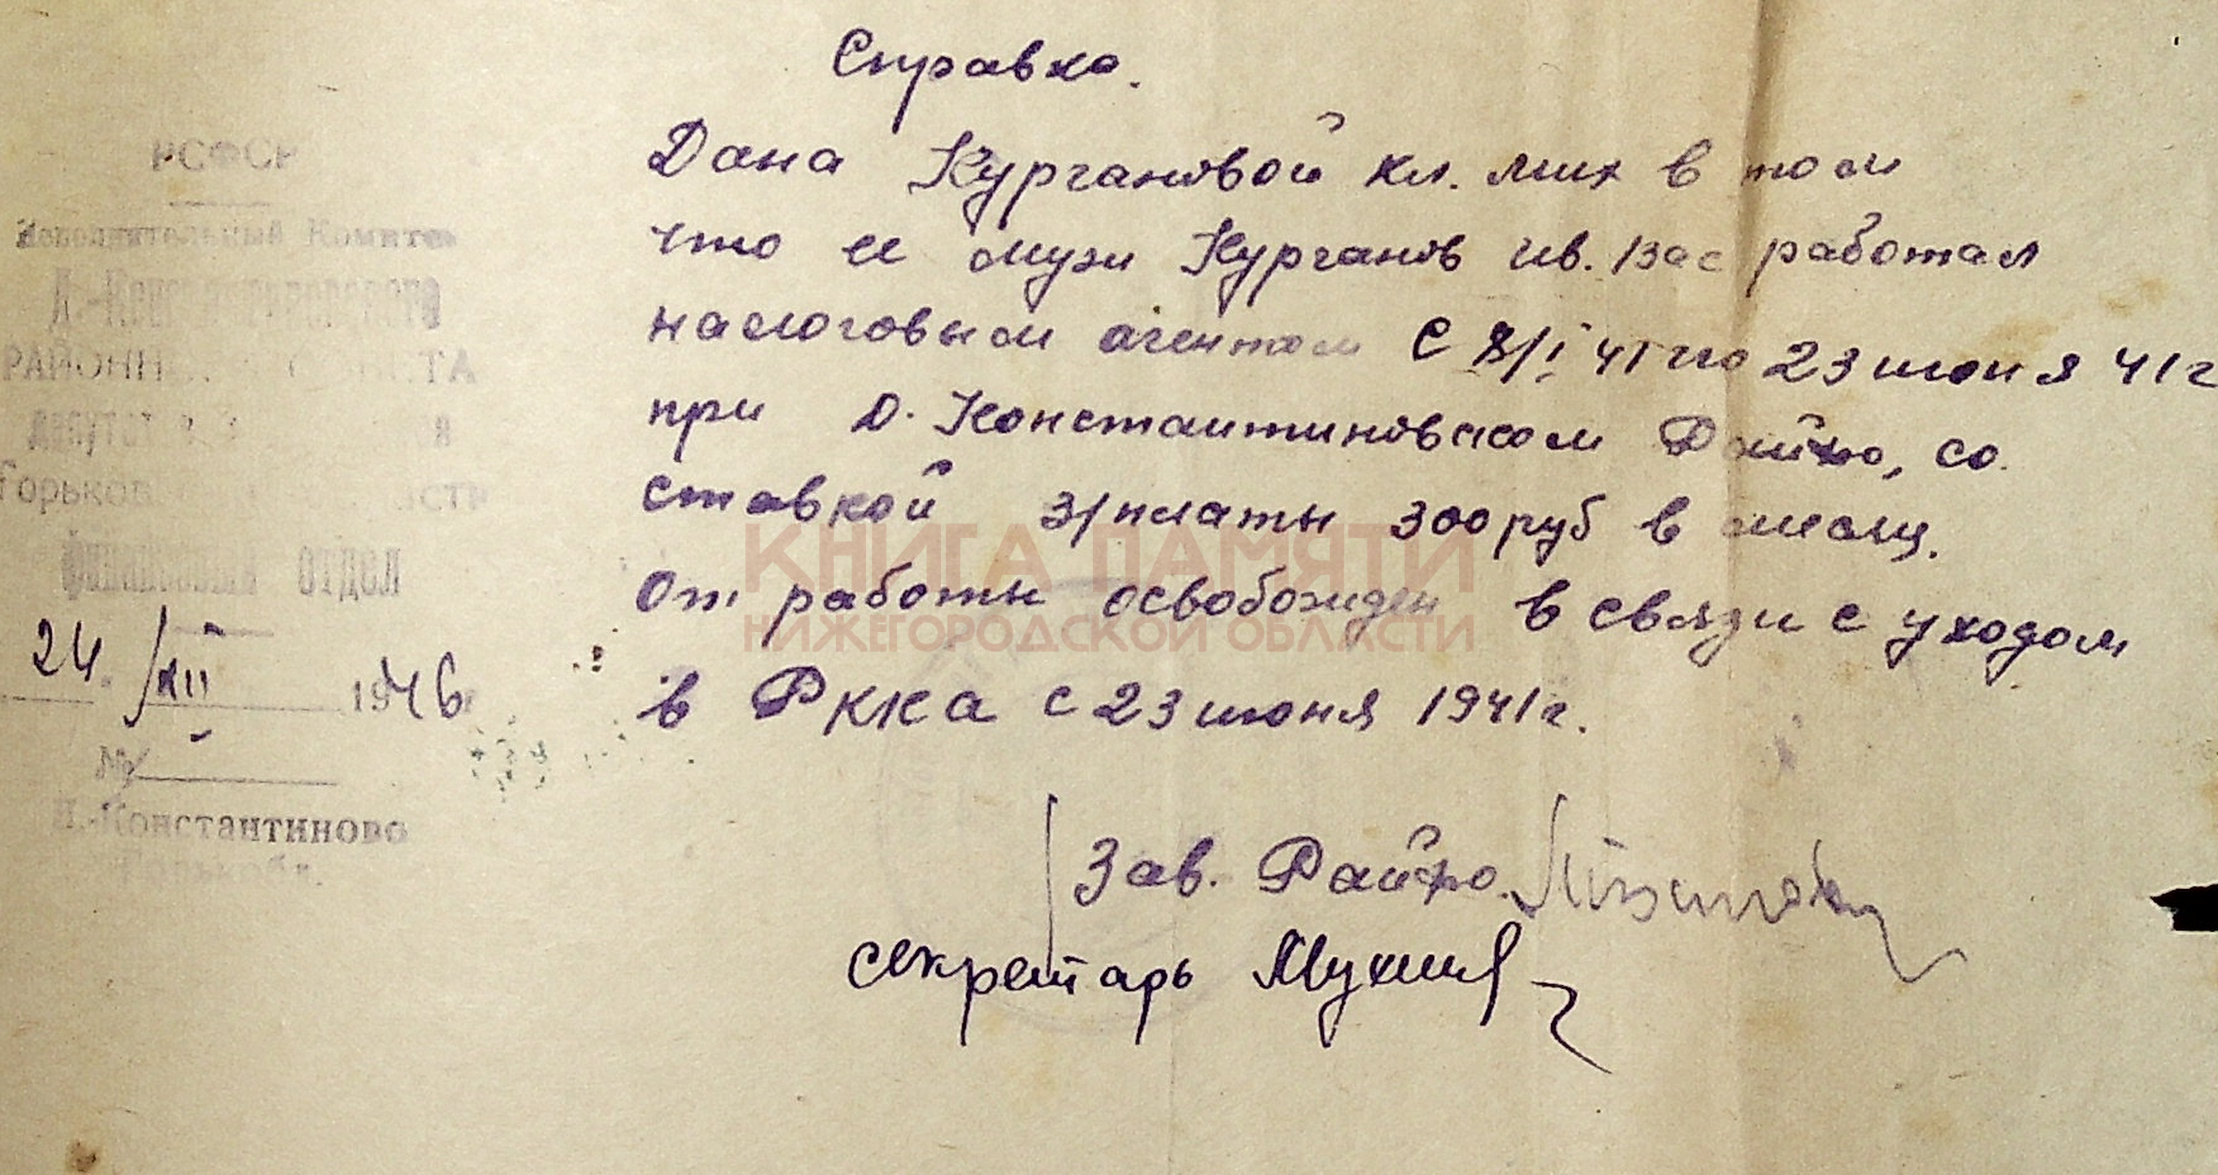 Справка.
Дана Кургановой Кл. Мих в том
что ее муж Курганов Ив. Вас работал
налоговым агентом с 8/I 41 по 23 июня 41 г
при Д. Константиновском Райфо, со
ставкой з/платы 300 руб в месяц.
От работы освобожден в связи с уходом
в РККА с 23 июня 1941 г.
Зав. Райфо.
секретарь
РСФСР
Исполнительный Комитет
РАЙОНН
депутат
Горьков
Финансовый отдел
24 /XII 1946
№
Д.-Константиново
Горькобл.
КНИГА ПАМЯТИ
НИЖЕГОРОДСКОЙ ОБЛАСТИ